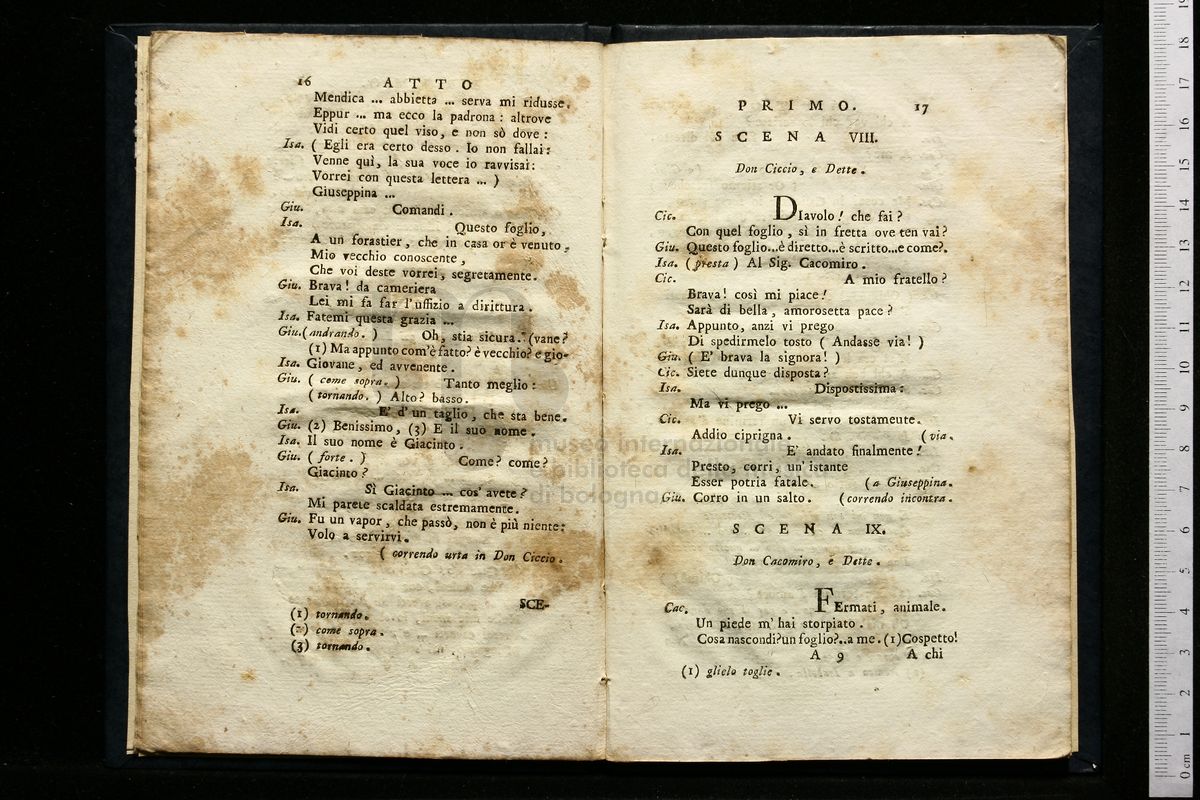 16 ATTO
Mendica ... abbietta ... serva mi ridusse.
Eppur ... ma ecco la padrona : altrove
Vidi certo quel viso, e non sò dove :
Isa. ( Egli era certo desso . Io non fallai :
Venne quì, la sua voce io ravvisai :
Vorrei con questa lettera ... )
Giuseppina ...
Giu. Comandi .
Isa. Questo foglio,
A un forastier, che in casa or è venuto,
Mio vecchio conoscente ,
Che voi deste vorrei, segretamente.
Giu. Brava ! da cameriera
Lei mi fa far l'uffizio a dirittura .
Isa. Fatemi questa grazia ...
Giu. ( andrando. ) Oh, stia sicura. (vane?
(1) Ma appunto com'è fatto? è vecchio? e gio-
Isa. Giovane, ed avvenente .
Giu. ( come sopra. ) Tanto meglio :
( tornando. ) Alto? basso.
Isa. E' d' un taglio , che sta bene.
Giu. (2) Benissimo, (3) E il suo nome.
Isa. Il suo nome è Giacinto .
Giu. ( forte . ) Come? come?
Giacinto ?
Isa. Sì Giacinto ... cos' avete ?
Mi parete scaldata estremamente.
Giu. Fu un vapor, che passò, non è più niente:
Volo a servirvi.
( correndo urta in Don Ciccio .
SCE-
(1) tornando.
(2) come sopra .
(3) tornando .
PRIMO. 17
SCENA VIII.
Don Ciccio, e Dette .
Cic. DIavolo ! che fai ?
Con quel foglio , sì in fretta ove ten vai?
Giu. Questo foglio...è diretto...è scritto...e come?.
Isa. (presta ) Al Sig. Cacomiro .
Cic. A mio fratello ?
Brava! così mi piace !
Sarà di bella , amorosetta pace ?
Isa. Appunto, anzi vi prego
Di spedirmelo tosto ( Andasse via! )
Giu. ( E' brava la signora! )
Cic. Siete dunque disposta ?
Isa. Dispostissima :
Ma vi prego ...
Cic. Vi servo tostamente.
Addio ciprigna . ( via .
Isa. E' andato finalmente !
Presto, corri, un' istante
Esser potria fatale . ( a Giuseppina.
Giu. Corro in un salto. (correndo incontra.
SCENA IX.
Don Cacomiro, e Dette .
Cac. FErmati , animale.
Un piede m' hai storpiato .
Cosa nascondi?un foglio?..a me. (1)Cospetto!
A 9 A chi
(1) glielo toglie .
museo internazionale
biblioteca della musica
di bologna